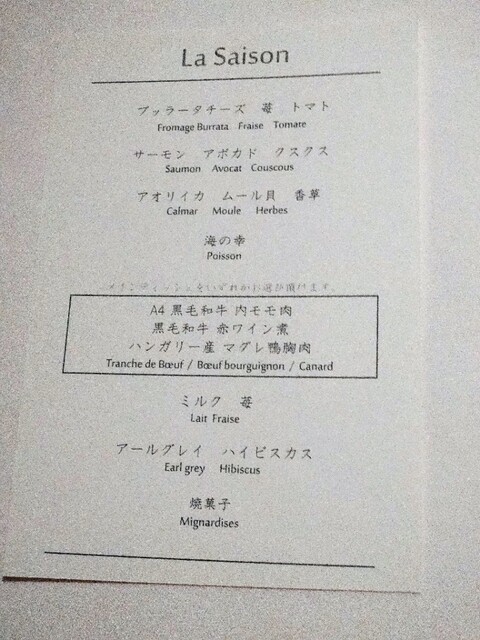 La Saison
ブッラータチーズ 苺 トマト
Fromage Burrata Fraise Tomate
サーモン アボカド クスクス
Saumon Avocat Couscous
アオリイカ ムール貝 香草
Calmar Moule Herbes
海の幸
Poisson
メインディッシュをいずれかお選び頂けます。
A4 黒毛和牛 内モモ肉
黒毛和牛 赤ワイン煮
ハンガリー産 マグレ鴨胸肉
Tranche de Bœuf / Bœuf bourguignon / Canard
ミルク 苺
Lait Fraise
アールグレイ ハイビスカス
Earl grey Hibiscus
焼菓子
Mignardises